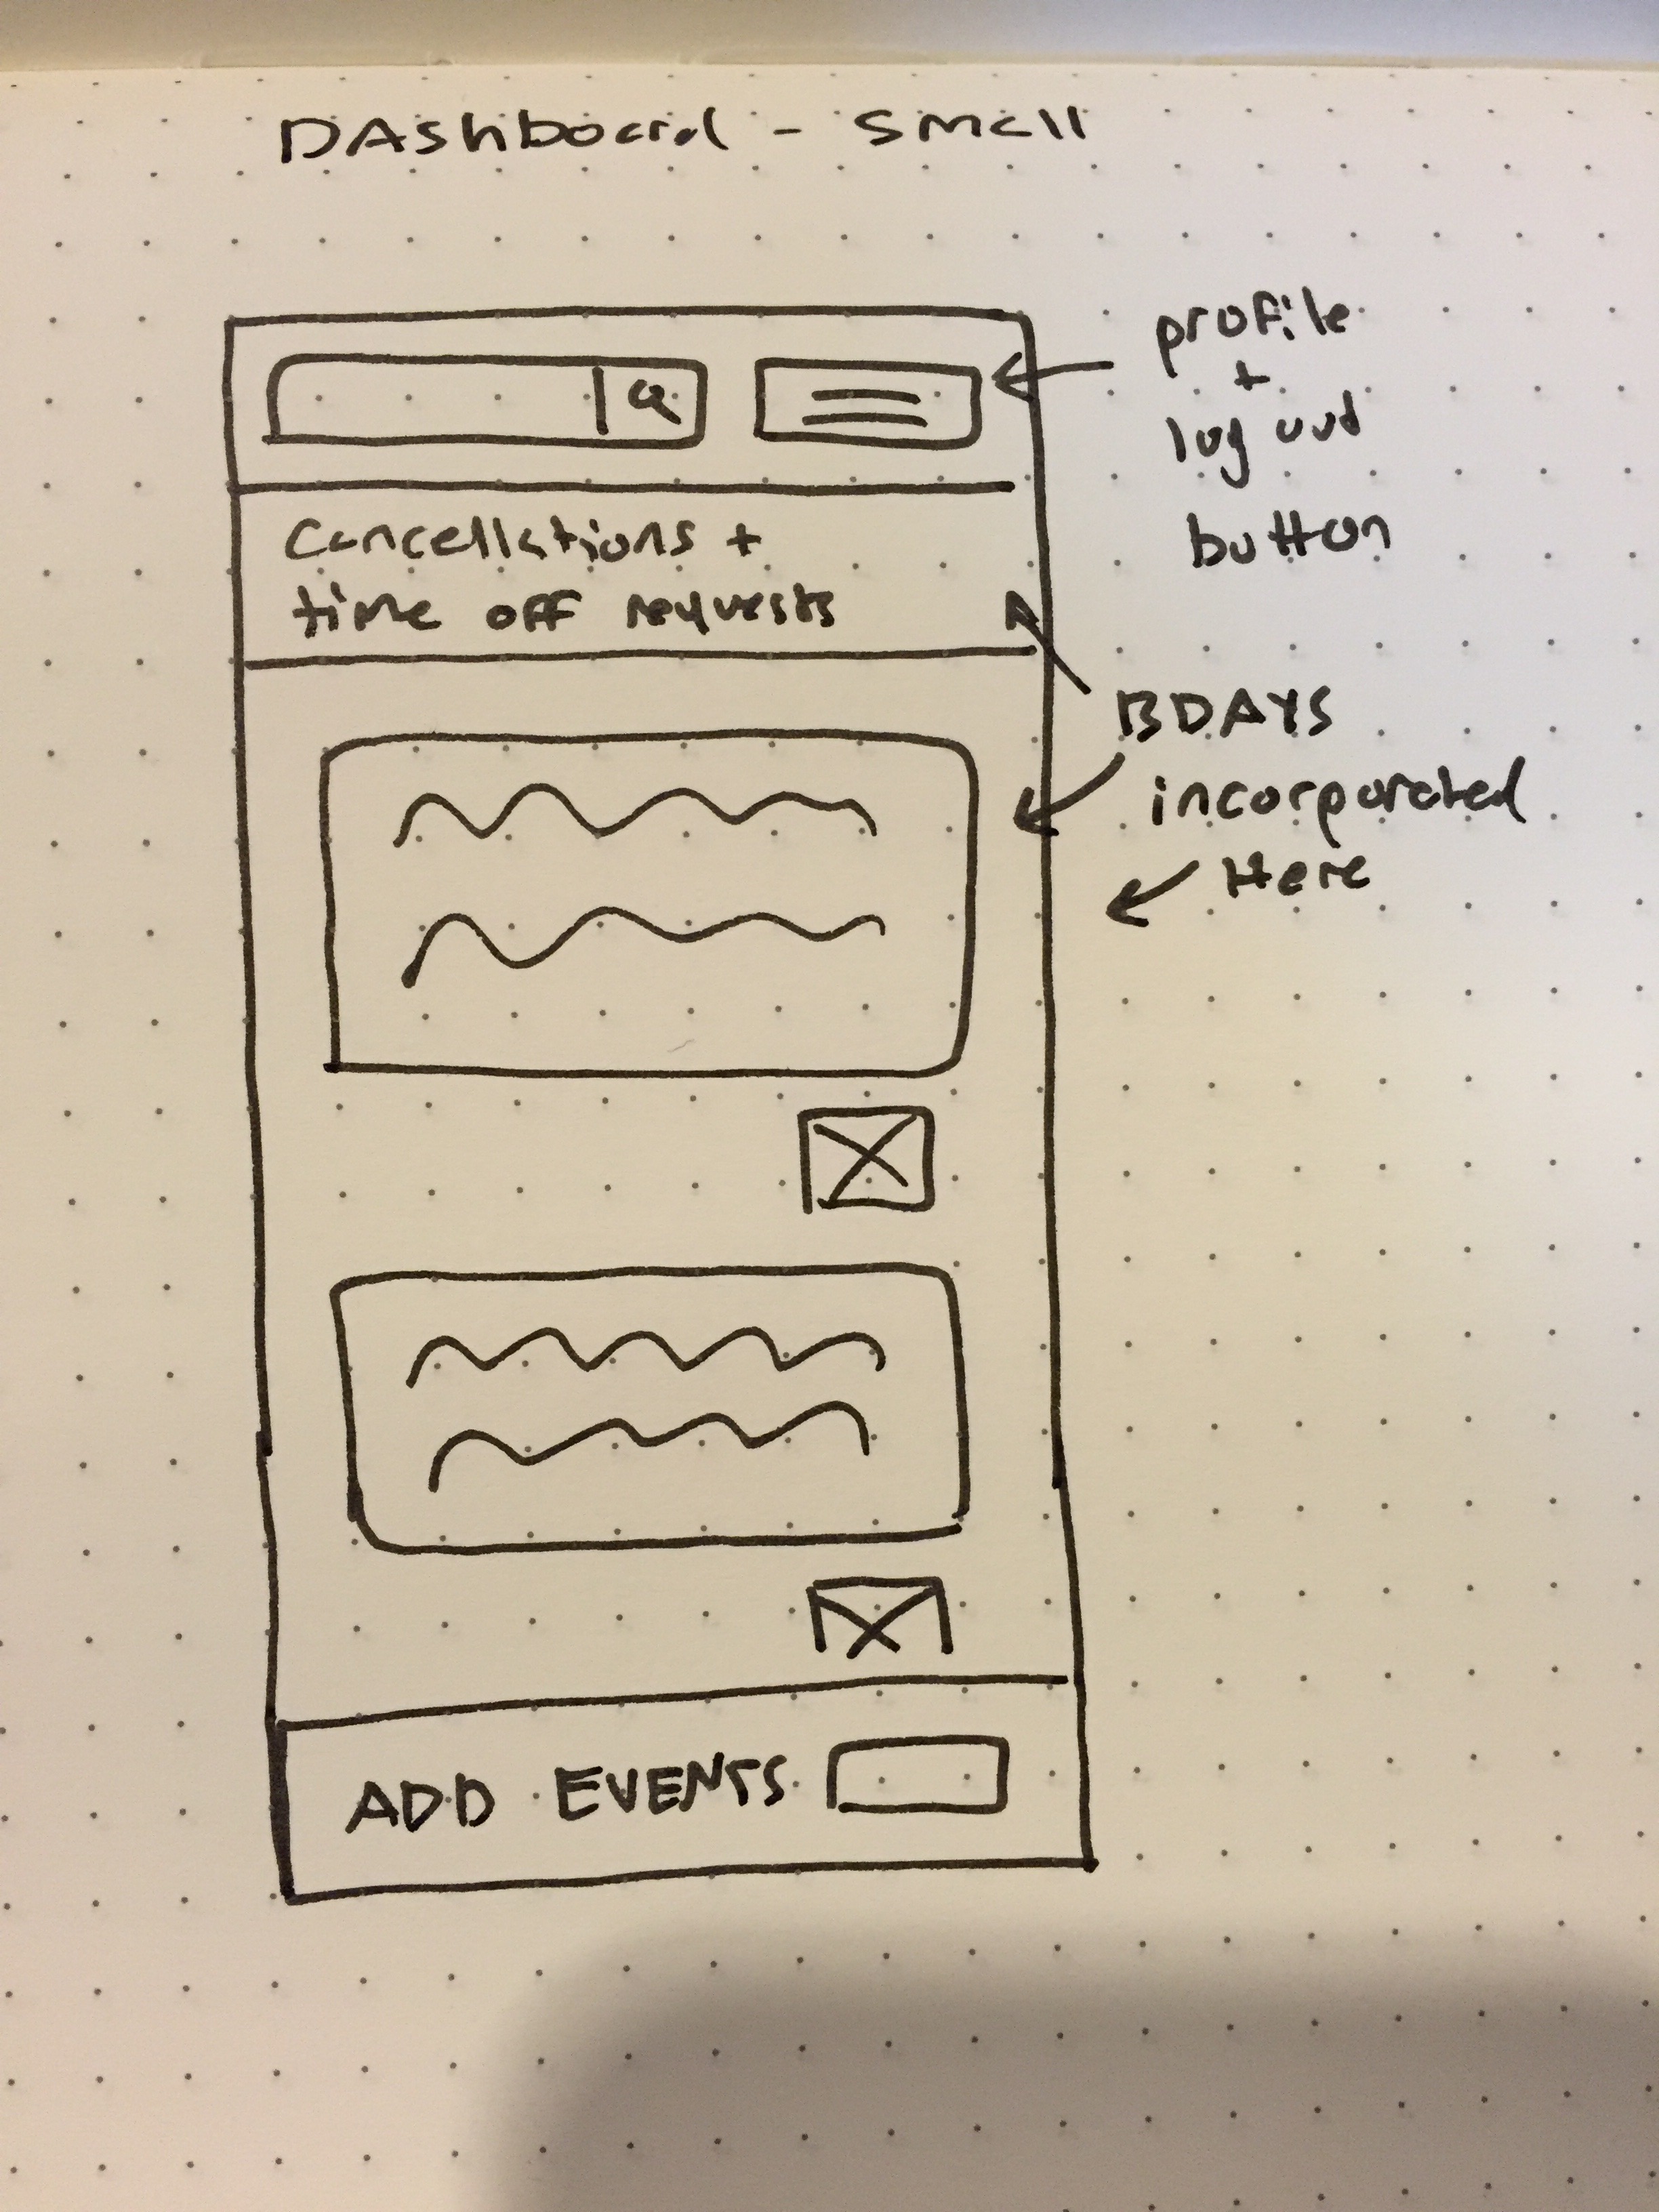 DAshboard - small
profile
+
log out
button
Cancellations +
time off requests
BDAYS
incorporated
Here
ADD EVENTS